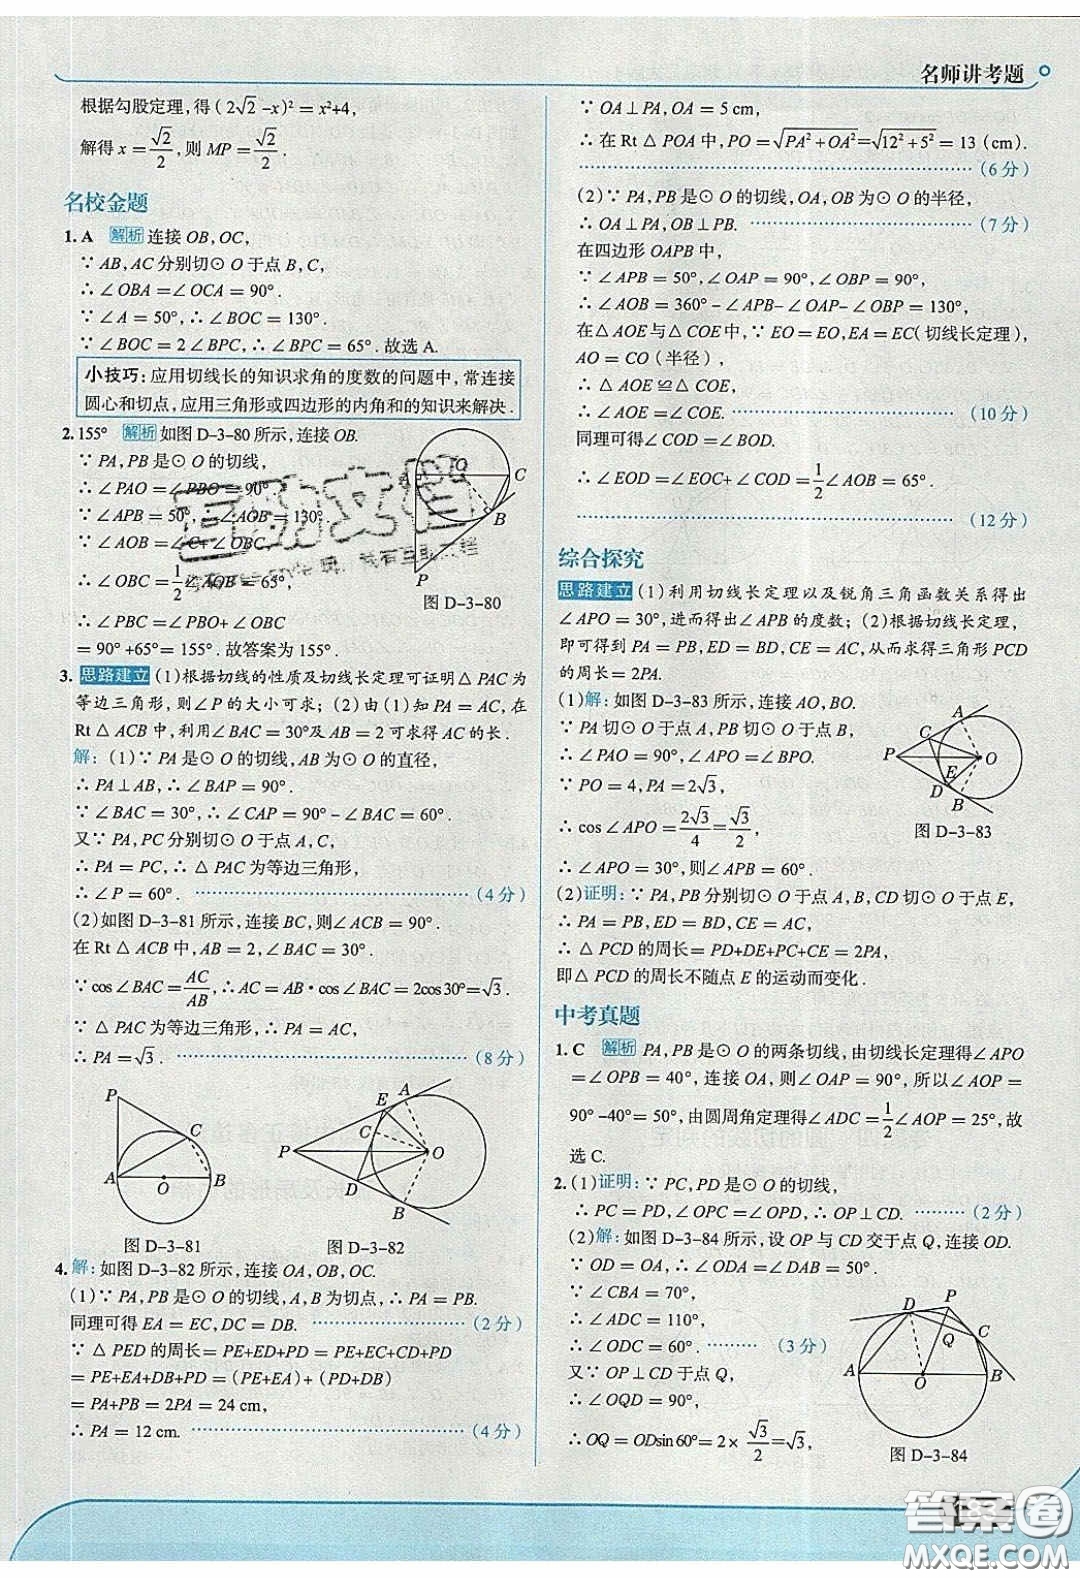 名师讲考题
根据勾股定理，得(2√2-x)²=x²+4，
解得x=√2/2，则MP=√2/2.
名校金题
1. A 解析 连接OB,OC，
∵AB,AC分别切⊙O于点B,C，
∴∠OBA=∠OCA=90°.
∵∠A=50°，∴∠BOC=130°.
∵∠BOC=2∠BPC，∴∠BPC=65°.故选A.
小技巧：应用切线长的知识求角的度数的问题中，常连接
圆心和切点，应用三角形或四边形的内角和的知识来解决.
2. 155° 解析 如图D-3-80所示，连接OB.
∵PA,PB是⊙O的切线，
∴∠PAO=∠PBO=90°.
∵∠APB=50°，∴∠AOB=130°.
∵∠AOB=∠C+∠OBC，
∴∠OBC=1/2∠AOB=65°，
∴∠PBC=∠PBO+∠OBC
=90°+65°=155°.故答案为155°.
A O C B P
图D-3-80
3. 思路建立 (1)根据切线的性质及切线长定理可证明△PAC为
等边三角形，则∠P的大小可求；(2)由(1)知PA=AC，在
Rt△ACB中，利用∠BAC=30°及AB=2可求得AC的长.
解：(1)∵PA是⊙O的切线，AB为⊙O的直径，
∴PA⊥AB，∴∠BAP=90°.
∵∠BAC=30°，∴∠CAP=90°-∠BAC=60°.
又∵PA,PC分别切⊙O于点A,C，
∴PA=PC，∴△PAC为等边三角形，
∴∠P=60°. (4分)
(2)如图D-3-81所示，连接BC，则∠ACB=90°.
在Rt△ACB中，AB=2，∠BAC=30°.
∵cos∠BAC=AC/AB，∴AC=AB·cos∠BAC=2cos30°=√3.
∵△PAC为等边三角形，∴PA=AC，
∴PA=√3. (8分)
P C A O B
图D-3-81
E A C P O D B
图D-3-82
4. 解：如图D-3-82所示，连接OA,OB,OC.
(1)∵PA,PB是⊙O的切线，A,B为切点，∴PA=PB.
同理可得EA=EC,DC=DB. (2分)
∵△PED的周长=PE+ED+PD=PE+EC+CD+PD
=PE+EA+DB+PD=(PE+EA)+(PD+DB)
=PA+PB=2PA=24 cm，
∴PA=12 cm. (4分)
∵OA⊥PA,OA=5 cm，
∴在Rt△POA中，PO=√(PA²+OA²)=√(12²+5²)=13(cm).
(6分)
(2)∵PA,PB是⊙O的切线，OA,OB为⊙O的半径，
∴OA⊥PA,OB⊥PB. (7分)
在四边形OAPB中，
∵∠APB=50°,∠OAP=90°,∠OBP=90°.
∴∠AOB=360°-∠APB-∠OAP-∠OBP=130°.
在△AOE与△COE中，∵EO=EO,EA=EC(切线长定理)，
AO=CO(半径)，
∴△AOE≌△COE，
∴∠AOE=∠COE. (10分)
同理可得∠COD=∠BOD.
∴∠EOD=∠EOC+∠COD=1/2∠AOB=65°.
(12分)
综合探究
思路建立 (1)利用切线长定理以及锐角三角函数关系得出
∠APO=30°，进而得出∠APB的度数；(2)根据切线长定理，
即可得到PA=PB,ED=BD,CE=AC，从而求得三角形PCD
的周长=2PA.
(1)解：如图D-3-83所示，连接AO,BO.
∵PA切⊙O于点A,PB切⊙O于点B，
∴∠PAO=90°,∠APO=∠BPO.
∵PO=4,PA=2√3，
∴cos∠APO=2√3/4=√3/2，
∴∠APO=30°，则∠APB=60°.
A C P E O D B
图D-3-83
(2)证明：∵PA,PB分别切⊙O于点A,B,CD切⊙O于点E，
∴PA=PB,ED=BD,CE=AC，
∴△PCD的周长=PD+DE+PC+CE=2PA，
即△PCD的周长不随点E的运动而变化.
中考真题
1. C 解析 PA,PB是⊙O的两条切线，由切线长定理得∠APO
=∠OPB=40°，连接OA，则∠OAP=90°，所以∠AOP=
90°-40°=50°，由圆周角定理得∠ADC=1/2∠AOP=25°，故
选C.
2. (1)证明：∵PC,PD是⊙O的切线，
∴PC=PD,∠OPC=∠OPD，∴OP⊥CD. (2分)
(2)解：如图D-3-84所示，设OP与CD交于点Q，连接OD.
∵OD=OA，∴∠ODA=∠DAB=50°.
∵∠CBA=70°，
∴∠ADC=110°，
∴∠ODC=60°. (3分)
又∵OP⊥CD于点Q，
∴∠OQD=90°，
∴OQ=ODsin60°=2×√3/2=√3，
D P C Q A O B
图D-3-84
答案圈
MXQE.COM